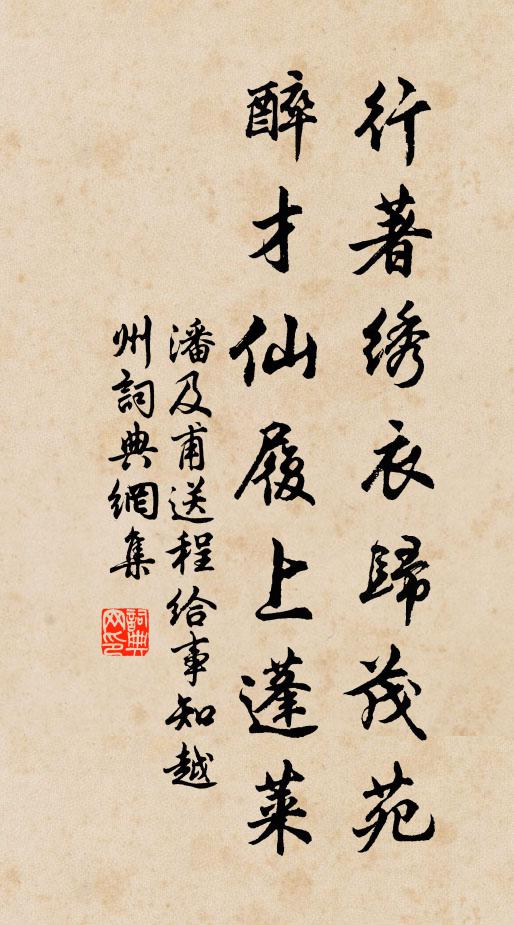 行著绣衣歸茂苑
醉才仙履上蓬莱
潘及甫送程给事知越
州詞典網集
詞典網印